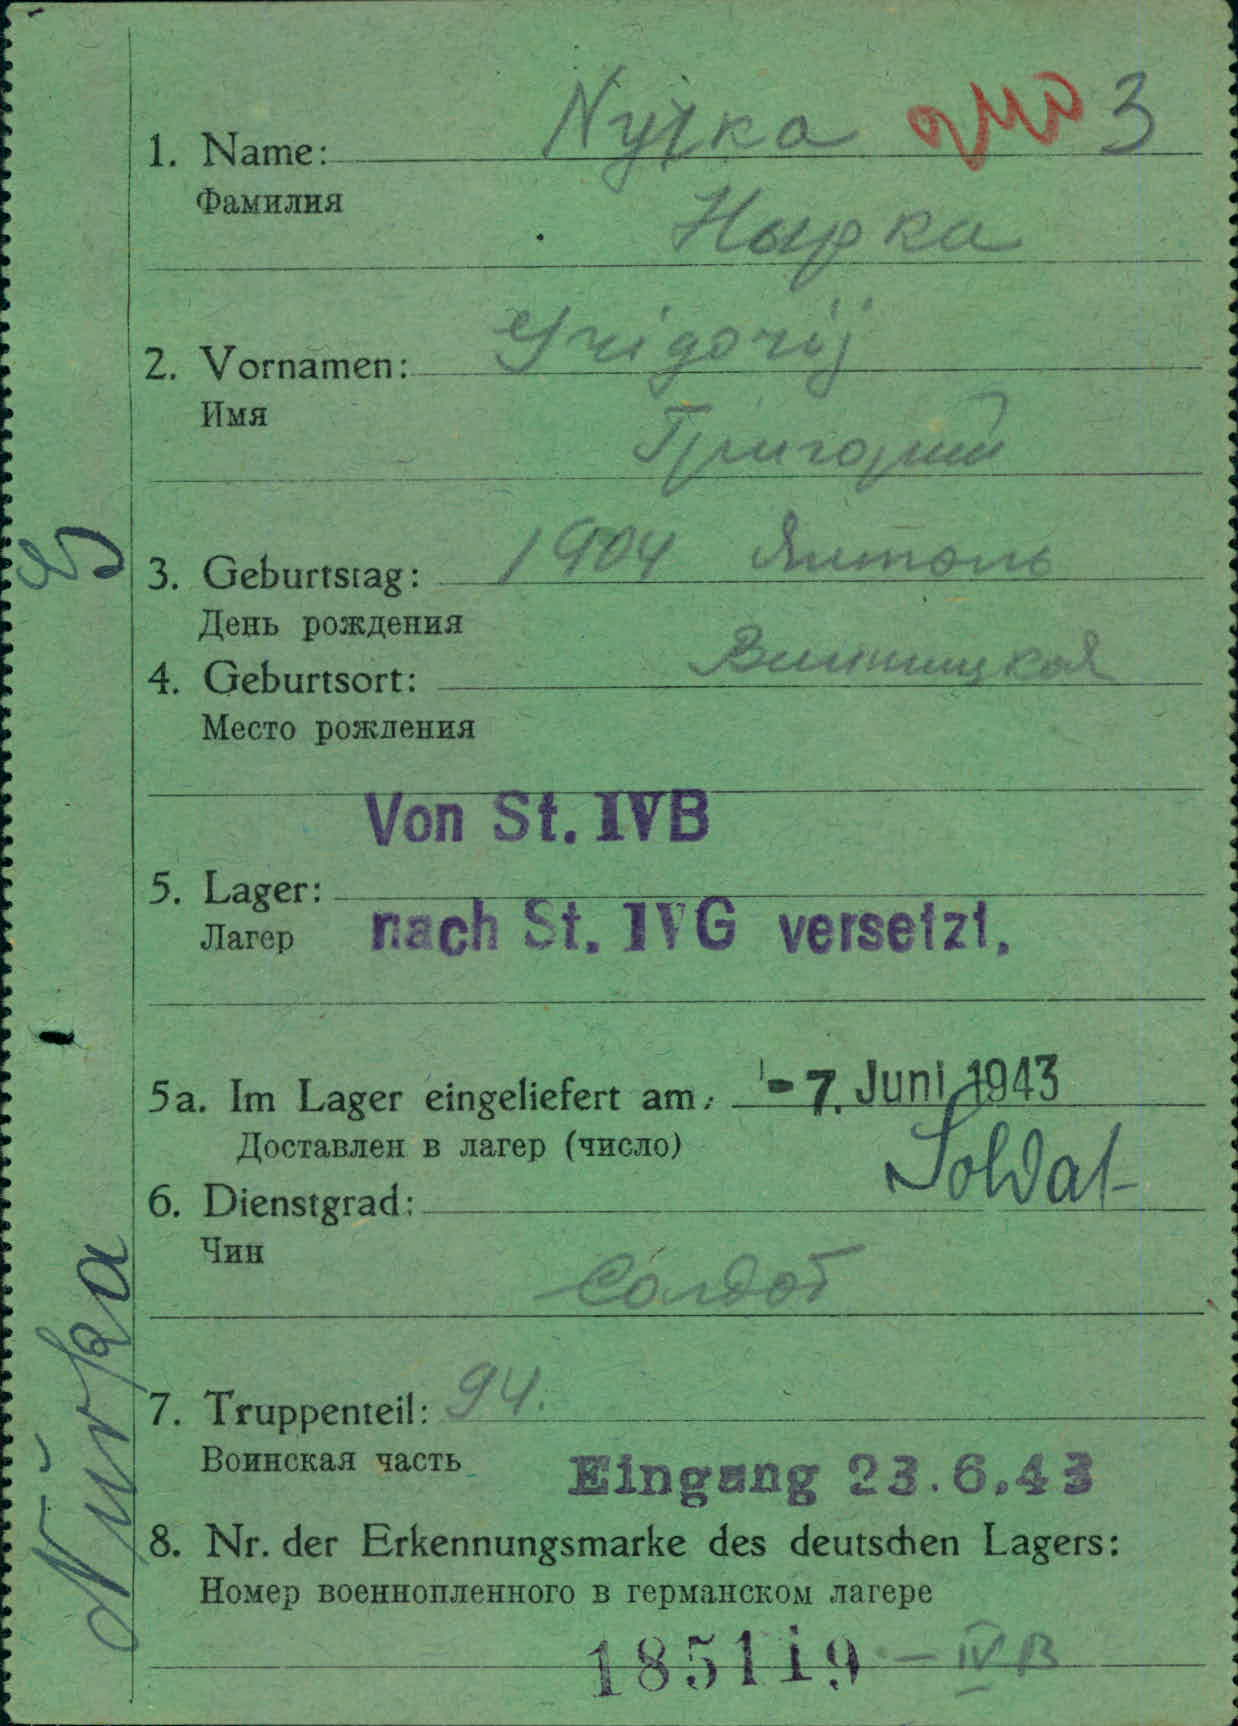 1. Name: Nyrka 3
Фамилия
Нырка
2. Vornamen: Grigorij
Имя
Григорий
3. Geburtstag: 1904 Ямполь
День рождения
4. Geburtsort: Винницкая
Место рождения
Von St. IVB
5. Lager:
Лагер nach St. IVG versetzt.
5a. Im Lager eingeliefert am: -7. Juni 1943
Доставлен в лагер (число)
6. Dienstgrad: Soldat
Чин
Солдат
7. Truppenteil: 94.
Воинская часть
Eingang 23.6.43
8. Nr. der Erkennungsmarke des deutschen Lagers:
Номер военнопленного в германском лагере
185119 - IV B
Nürka